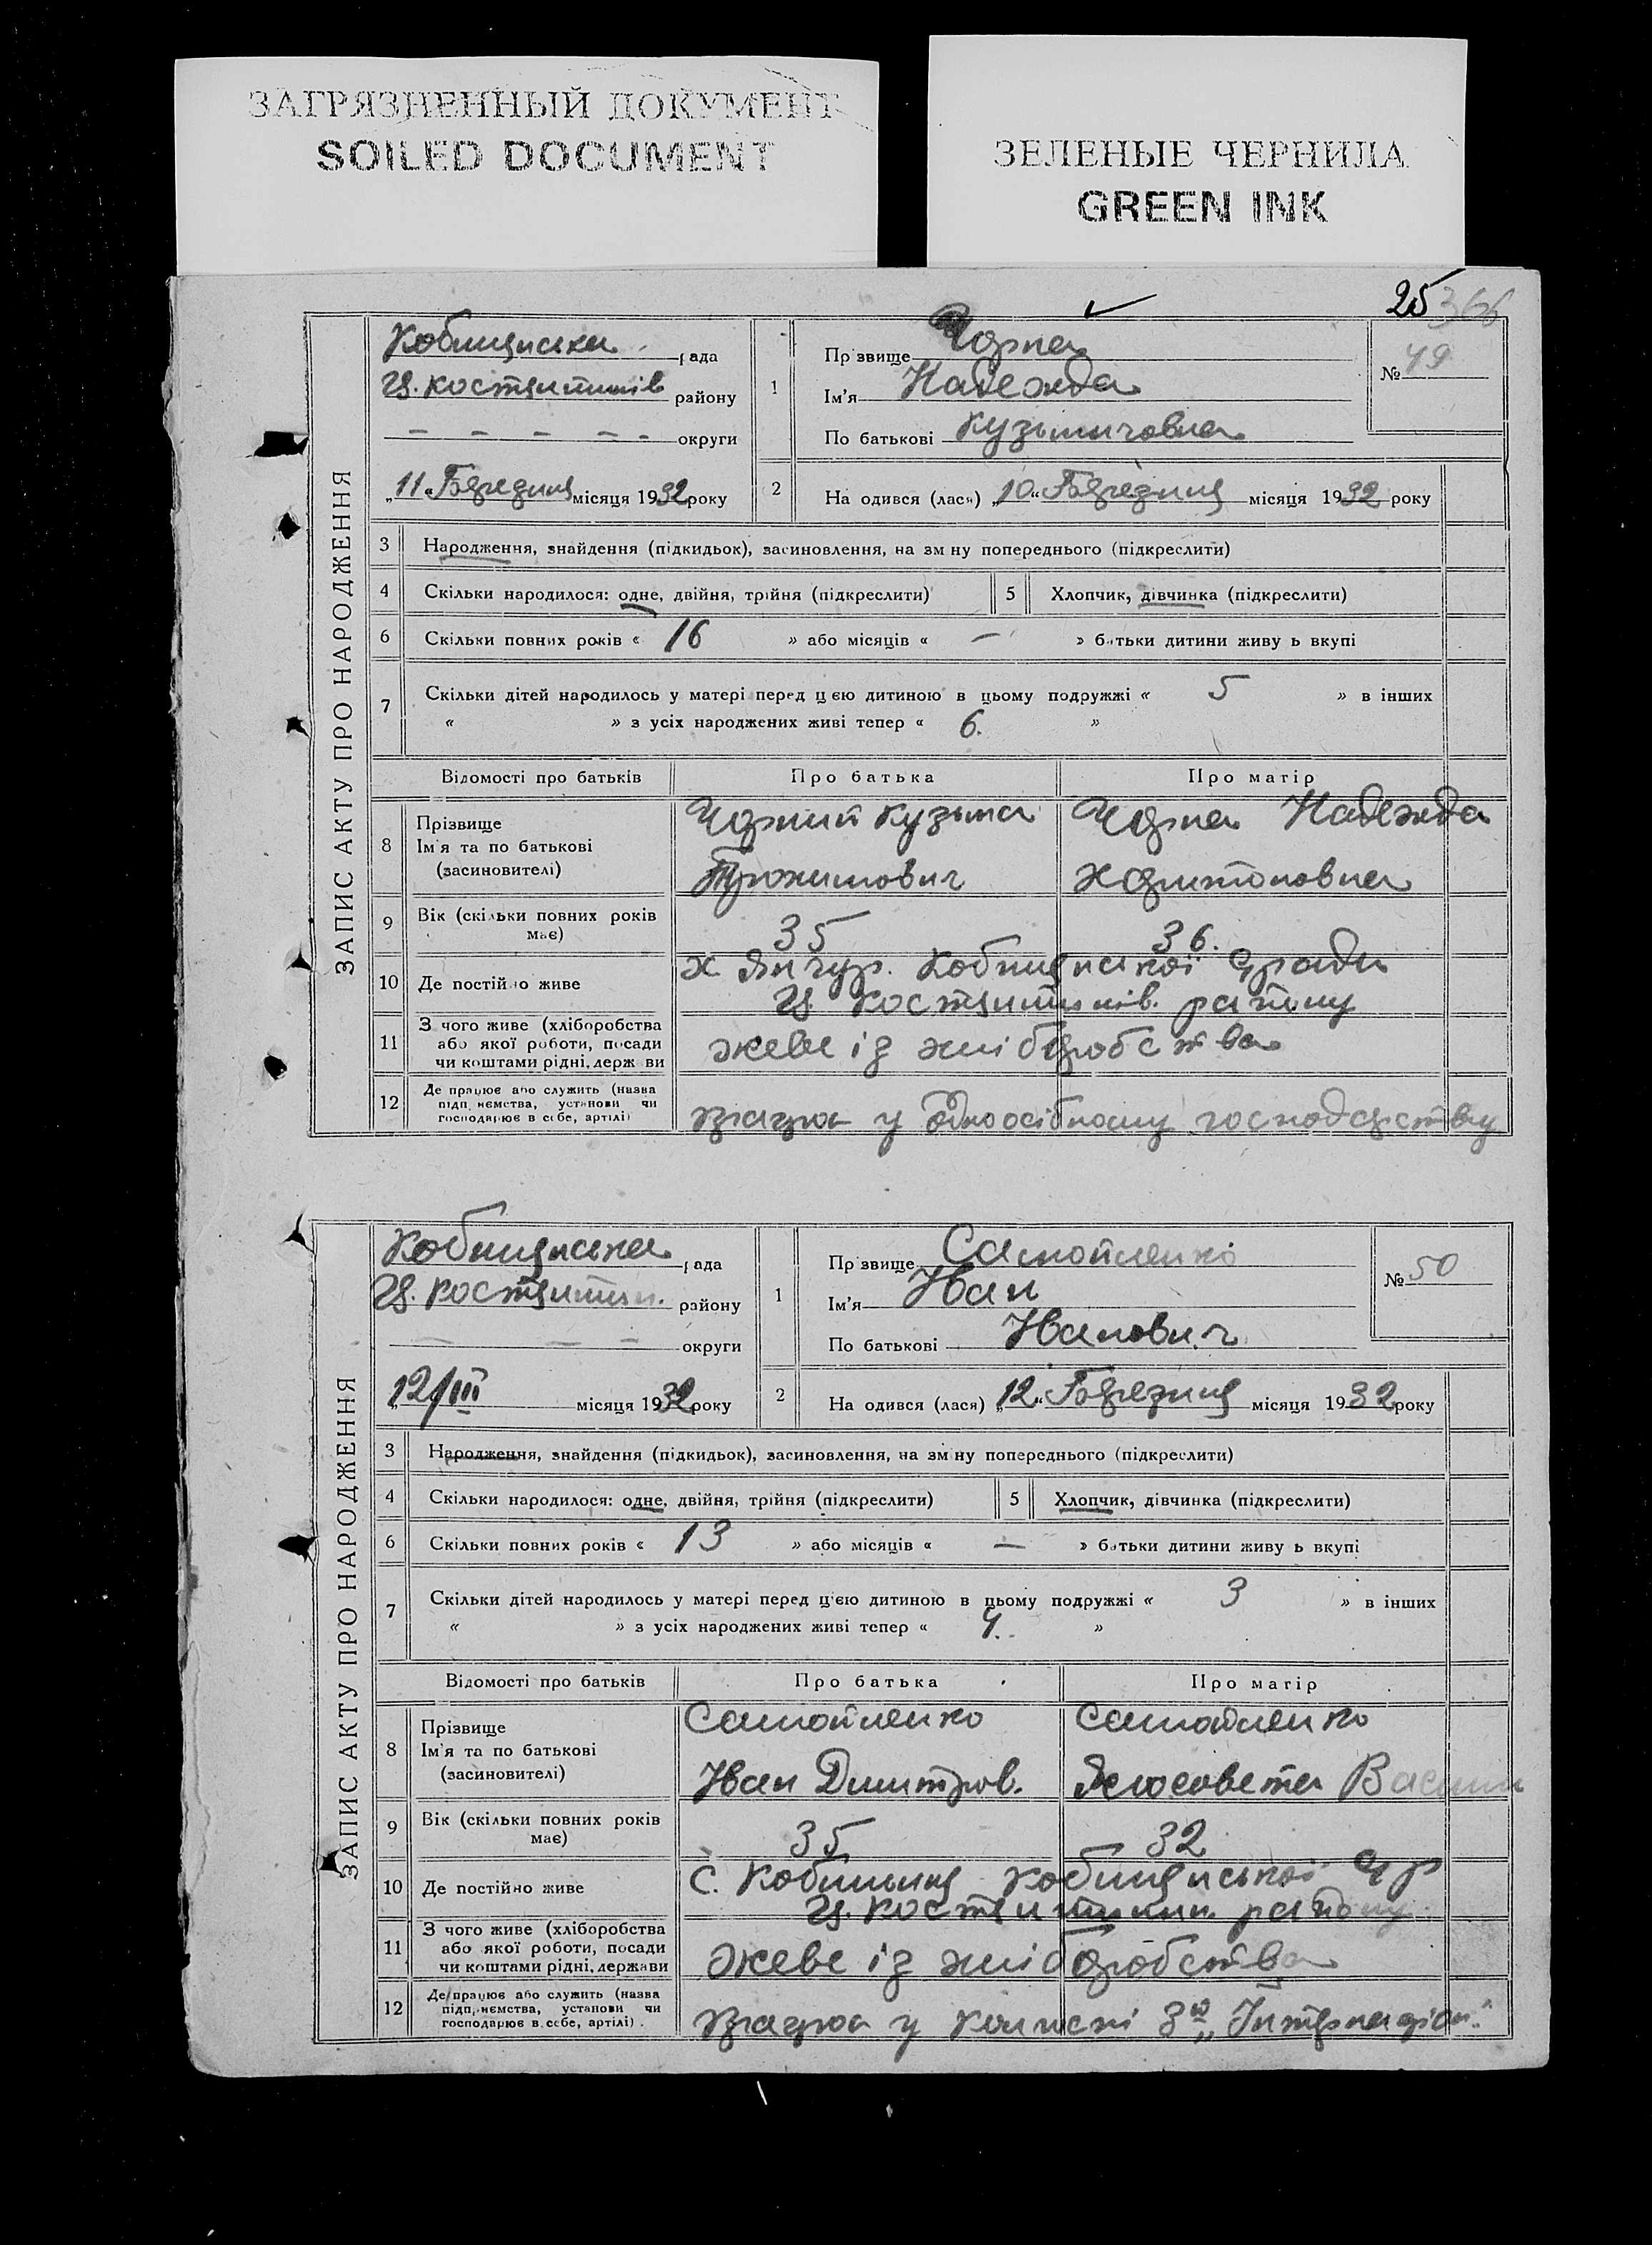 ЗАГРЯЗНЕННЫЙ ДОКУМЕНТ
SOILED DOCUMENT
ЗЕЛЕНЫЕ ЧЕРНИЛА
GREEN INK
25 366
ЗАПИС АКТУ ПРО НАРОДЖЕННЯ
рада
району
округи
„11“ Березня місяця 1932 року
1
Прізвище Чорна
Ім'я Надежда
По батькові Кузьмичовна
№ 49
2
На одився (лася) „10“ Березня місяця 1932 року
3 Народження, знайдення (підкидьок), засиновлення, на зм ну попереднього (підкреслити)
4 Скільки народилося: одне, двійня, трійня (підкреслити) 5 Хлопчик, дівчинка (підкреслити)
6 Скільки повних років « 16 » або місяців « — » батьки дитини живу ь вкупі
7 Скільки дітей народилось у матері перед цією дитиною в цьому подружжі « 5 » в інших
« » з усіх народжених живі тепер « 6. »
Відомості про батьків Про батька Про матір
8 Прізвище
Ім'я та по батькові
(засиновителі)
Чорний Кузьма Чорна Надежда
Трохимович Харитоновна
9 Вік (скільки повних років
має)
35 36.
10 Де постійно живе
х
району
11 З чого живе (хліборобства
або якої роботи, посади
чи коштами рідні, держ ви
живе із хліборобства
12 Де працює або служить (назва
підп. ємства, установи чи
господарює в себе, артілі)
працює у одноосібному господарству
ЗАПИС АКТУ ПРО НАРОДЖЕННЯ
рада
району
округи
12/III місяця 1932 року
1
Прізвище Самойленко
Ім'я Иван
По батькові Иванович
№ 50
2
На одився (лася) „12“ Березня місяця 1932 року
3 Народження, знайдення (підкидьок), засиновлення, на зм ну попереднього (підкреслити)
4 Скільки народилося: одне, двійня, трійня (підкреслити) 5 Хлопчик, дівчинка (підкреслити)
6 Скільки повних років « 13 » або місяців « — » батьки дитини живу ь вкупі
7 Скільки дітей народилось у матері перед цією дитиною в цьому подружжі « 3 » в інших
« » з усіх народжених живі тепер « 4. »
Відомості про батьків Про батька Про матір
8 Прізвище
Ім'я та по батькові
(засиновителі)
Самойленко Самойленко
Иван Дмитров.
9 Вік (скільки повних років
має)
35 32
10 Де постійно живе
с.
району
11 З чого живе (хліборобства
або якої роботи, посади
чи коштами рідні, держави
живе із хліборобства
12 Де працює або служить (назва
підп. ємства, установи чи
господарює в себе, артілі)
працює у 3й „Інтернаціон.“